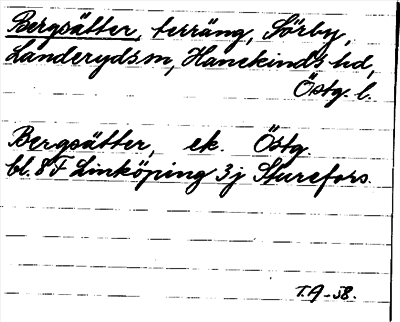 Bergsätter, terräng, Sörby,
Landeryds sn, Hanekinds hd,
Östg. l.
Bergsätter, ek. Östg.
bl. 8 F Linköping 3j Sturefors.
T.A-58.